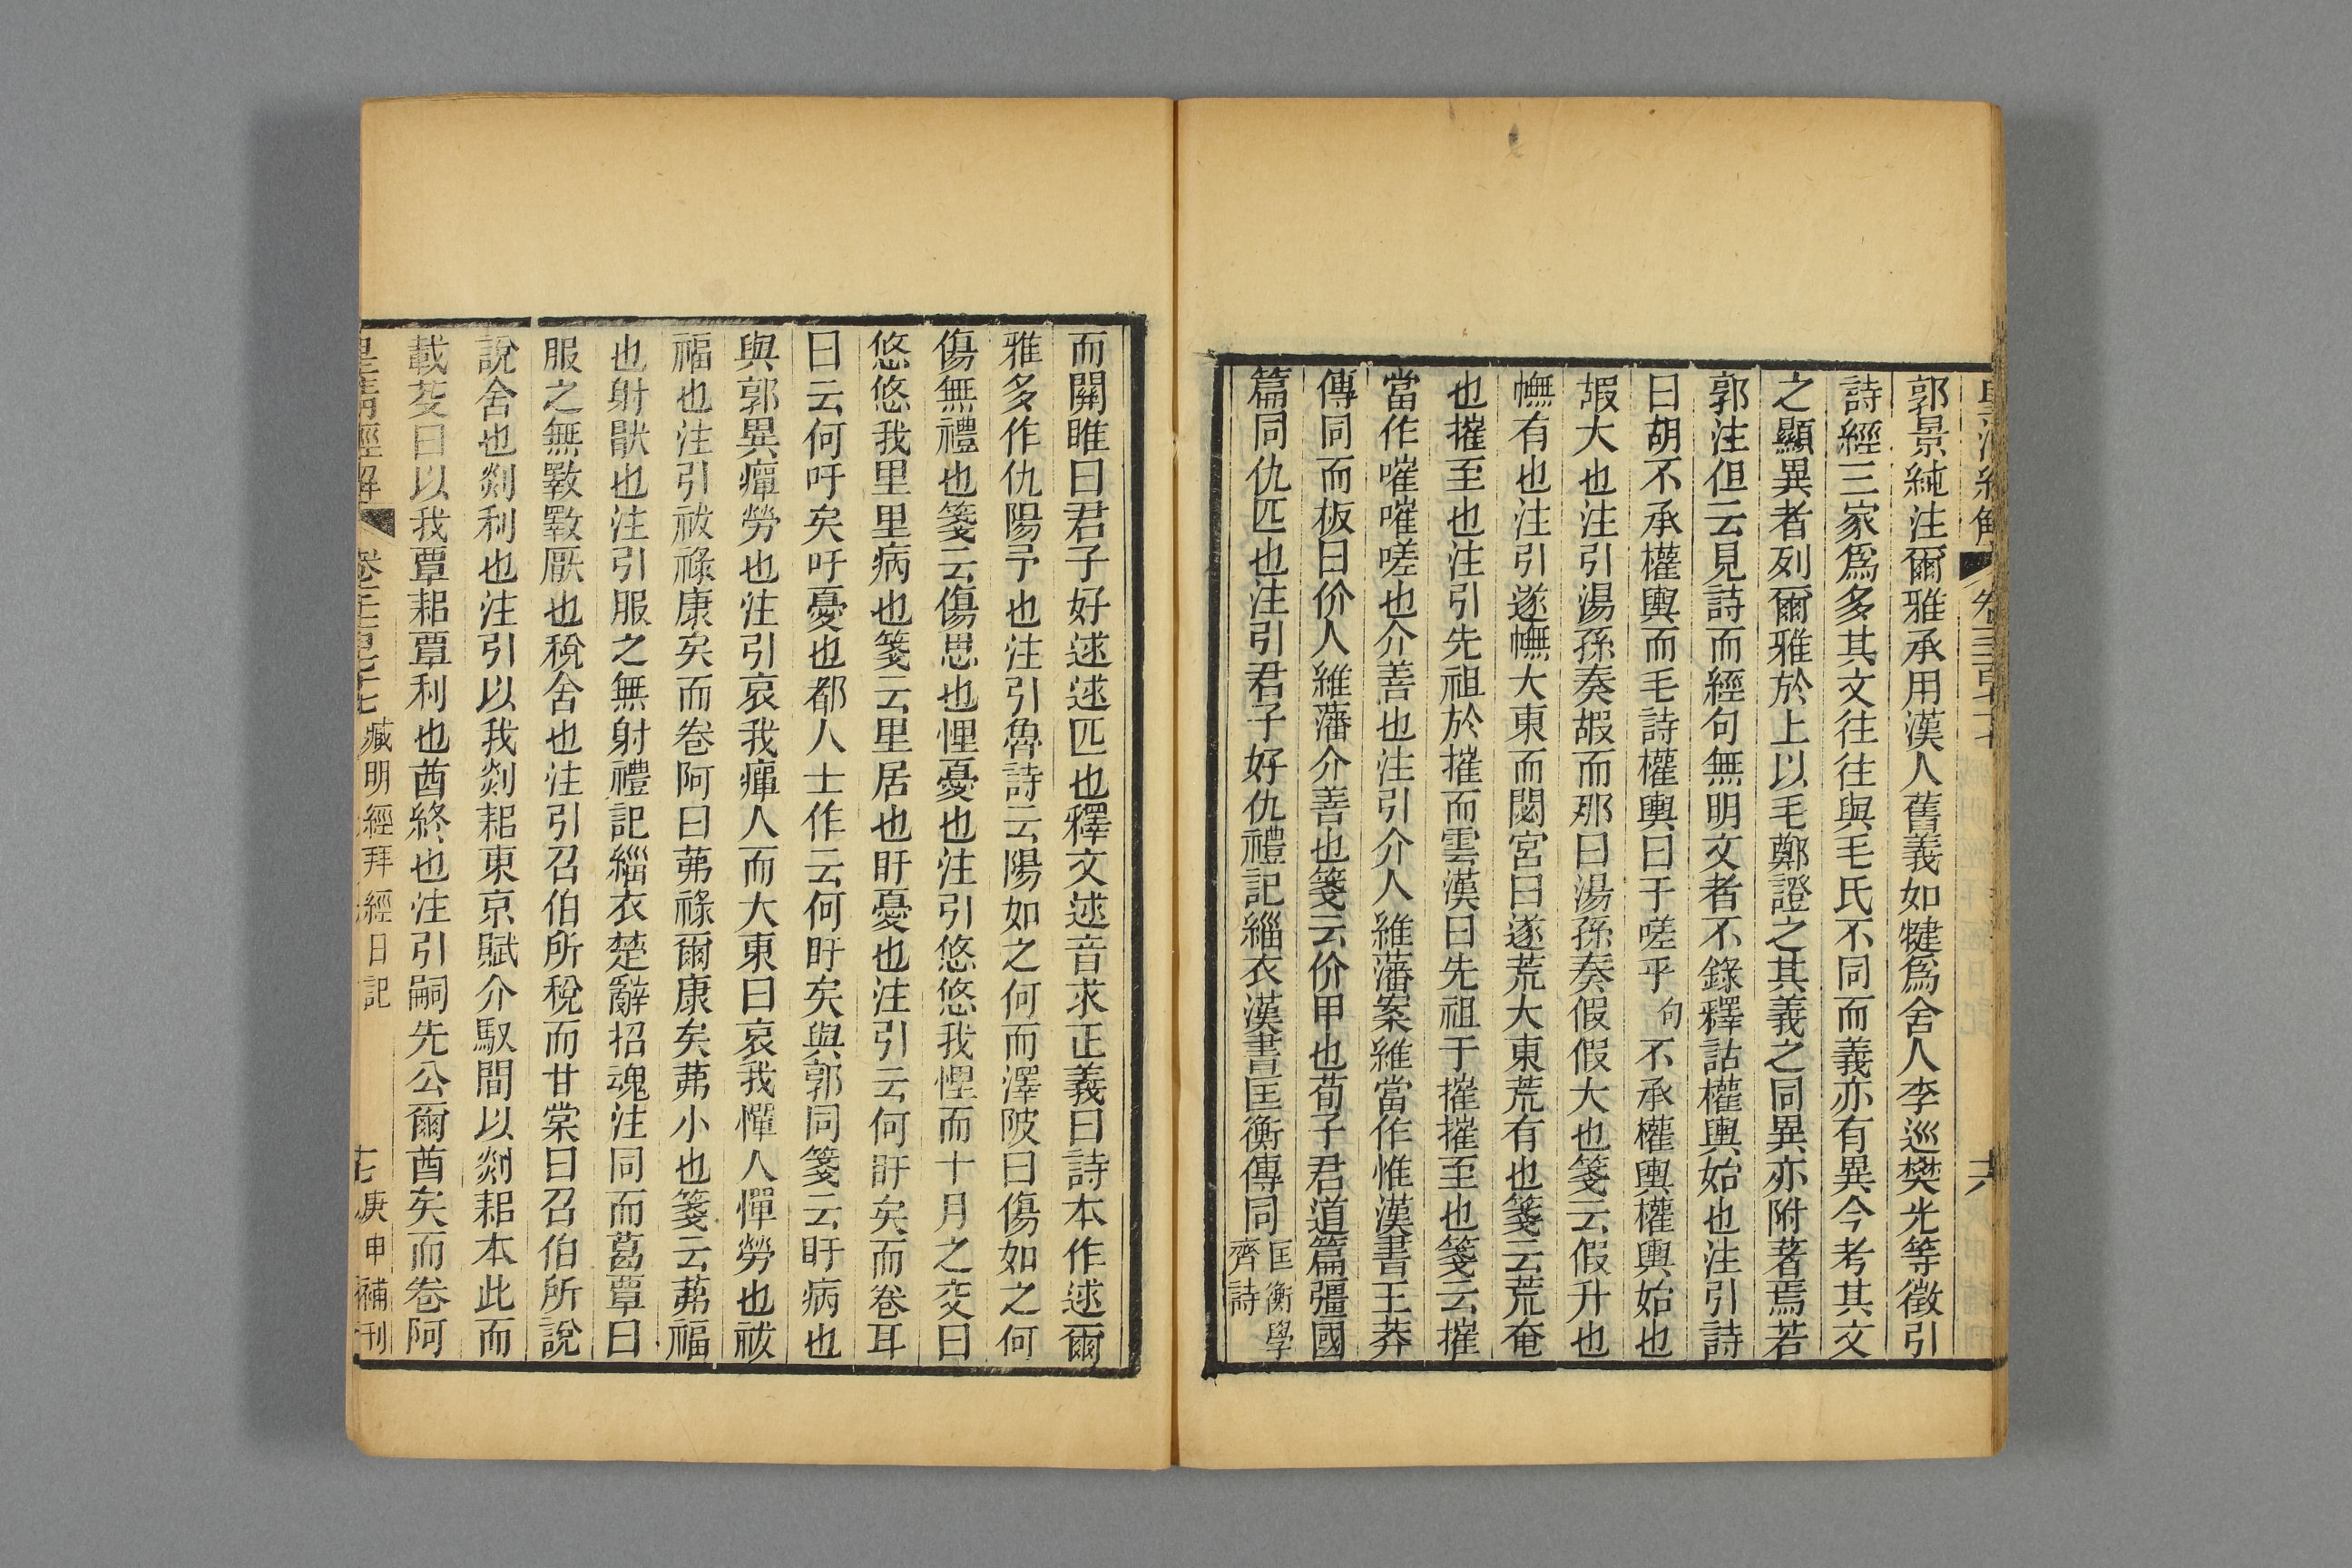 郭景純注爾雅承用漢人舊義如犍爲舍人李巡樊光等徵引
詩經三家爲多其文往往與毛氏不同而義亦有異今考其文
之顯異者列爾雅於上以毛鄭證之其義之同異亦附著焉若
郭注但云見詩而經句無明文者不錄釋詁權輿始也注引詩
曰胡不承權輿而毛詩權輿曰于嗟乎句不承權輿權輿始也
嘏大也注引湯孫奏嘏而那曰湯孫奏假假大也箋云假升也
幠有也注引遂幠大東而閟宮曰遂荒大東荒有也箋云荒奄
也摧至也注引先祖於摧而雲漢曰先祖于摧摧至也箋云摧
當作嗺嗺嗟也介善也注引介人維藩案維當作惟漢書王莽
傳同而板曰价人維藩介善也箋云价甲也荀子君道篇彊國
篇同仇匹也注引君子好仇禮記緇衣漢書匡衡傳同匡衡學
齊詩
而關雎曰君子好逑逑匹也釋文逑音求正義曰詩本作逑爾
雅多作仇陽予也注引魯詩云陽如之何而澤陂曰傷如之何
傷無禮也箋云傷思也悝憂也注引悠悠我悝而十月之交曰
悠悠我里里病也箋云里居也盱憂也注引云何盱矣而卷耳
曰云何吁矣吁憂也都人士作云何盱矣與郭同箋云盱病也
與郭異癉勞也注引哀我癉人而大東曰哀我憚人憚勞也祓
福也注引祓祿康矣而卷阿曰茀祿爾康矣茀小也箋云茀福
也射厭也注引服之無射禮記緇衣楚辭招魂注同而葛覃曰
服之無斁斁厭也稅舍也注引召伯所稅而甘棠曰召伯所說
說舍也剡利也注引以我剡耜東京賦介馭間以剡耜本此而
載芟曰以我覃耜覃利也酋終也注引嗣先公爾酋矣而卷阿
臧明經拜經日記 庚申補刊